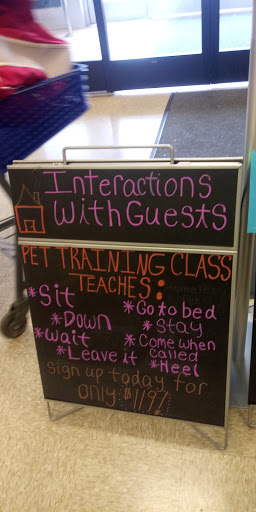 Interactions
with Guests
PET TRAINING CLASS
TEACHES:
*Sit
*Down
*Wait
*Leave it
*Go to bed
*Stay
*Come when
called
*Heel
sign up today for
only $119!